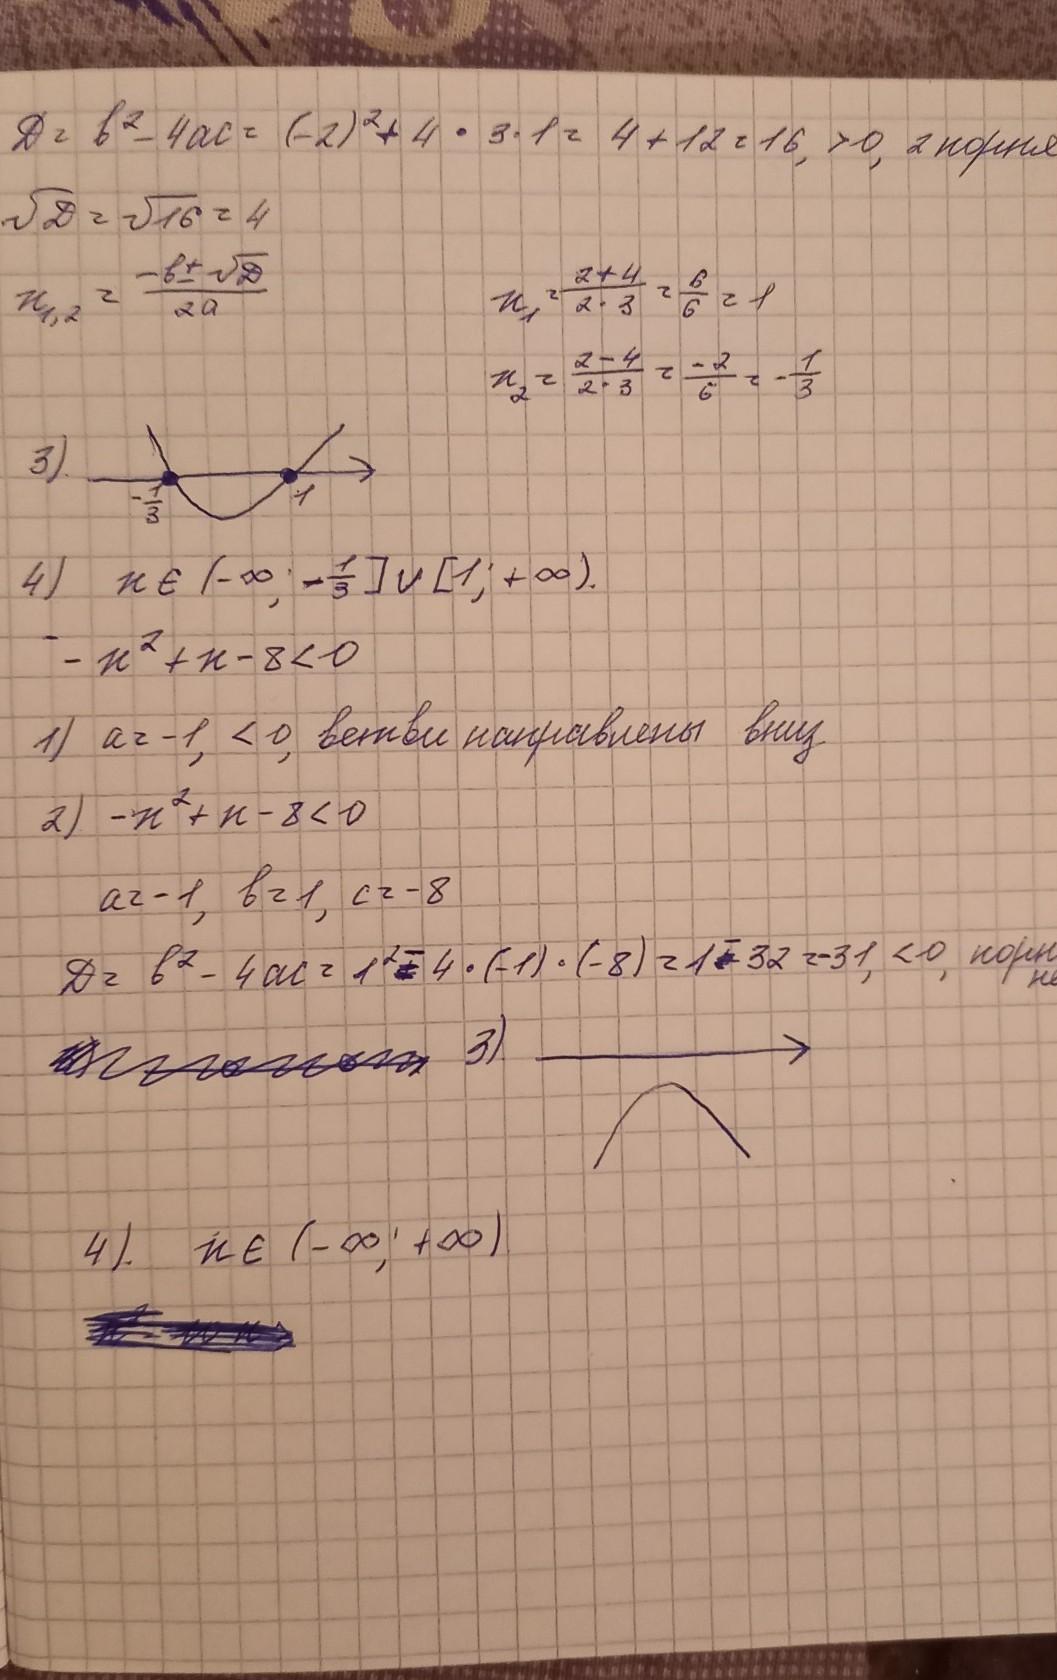 D = b² - 4ac = (-2)² + 4 · 3 · 1 = 4 + 12 = 16, >0, 2 корня
√D = √16 = 4
x₁,₂ = (-b ± √D)/(2a)
x₁ = (2+4)/(2·3) = 6/6 = 1
x₂ = (2-4)/(2·3) = -2/6 = -1/3
3).
-1/3 1
4) x ∈ (-∞; -1/3] ∪ [1; +∞).
- x² + x - 8 < 0
1) a = -1, <0, ветви направлены вниз
2) -x² + x - 8 < 0
a = -1, b = 1, c = -8
D = b² - 4ac = 1² - 4 · (-1) · (-8) = 1 - 32 = -31, <0, корн
не
3)
4). x ∈ (-∞; +∞)